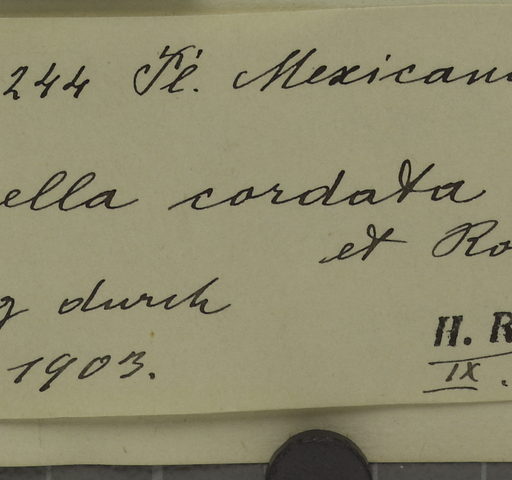 244 Fl. Mexican
ella cordata
et Ro
g durch
1903.
H. R
IX.